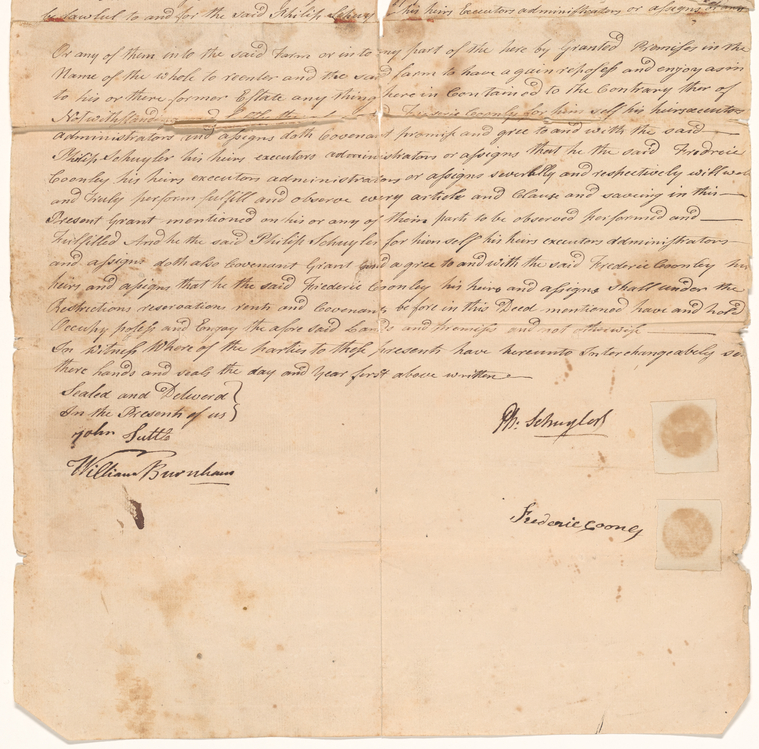 be Lawful to and for the said Philip Schuyl his heirs Executors administrators or assigns
Or any of them into the said Farm or in to any part of the here by Granted Premises in the
Name of the whole to reenter and the said farm to have again repossess and enjoy as in
to his or there former Estate any thing here in Contained to the Contrary ther of
Notwithstanding and Frederic Coonley for him self his heirs executors
administrators and assigns doth Covenant promis and gree to and with the said
Philip Schuyler his heirs executors administrators or assigns that he the said Fredreic
Coonley his heirs executors administrators or assigns severally and respectively will well
and truly perform fulfill and observe every article and Clause and saveing in this
Present Grant mentioned on his or any of their parts to be observed performed and
Fulfilled And he the said Philip Schuyler for himself his heirs executors administrators
and assigns doth also Covenant Grant and a gree to and with the said Frederic Coonley his
heirs and assigns that he the said Frederic Coonley his heirs and assigns shall under the
Restrictions reservation rents and Covenants before in this Deed mentioned have and hold
Occupy possess and Enjoy the afore said Lands and premises and not otherwise
In Witness Where of the parties to these presents have hereunto Interchangeabely se
there hands and seals the day and year first above written
Sealed and Delverd
In the Presents of us
John Suttle
William Burnham
Ph. Schuyler
Frederic Coonley